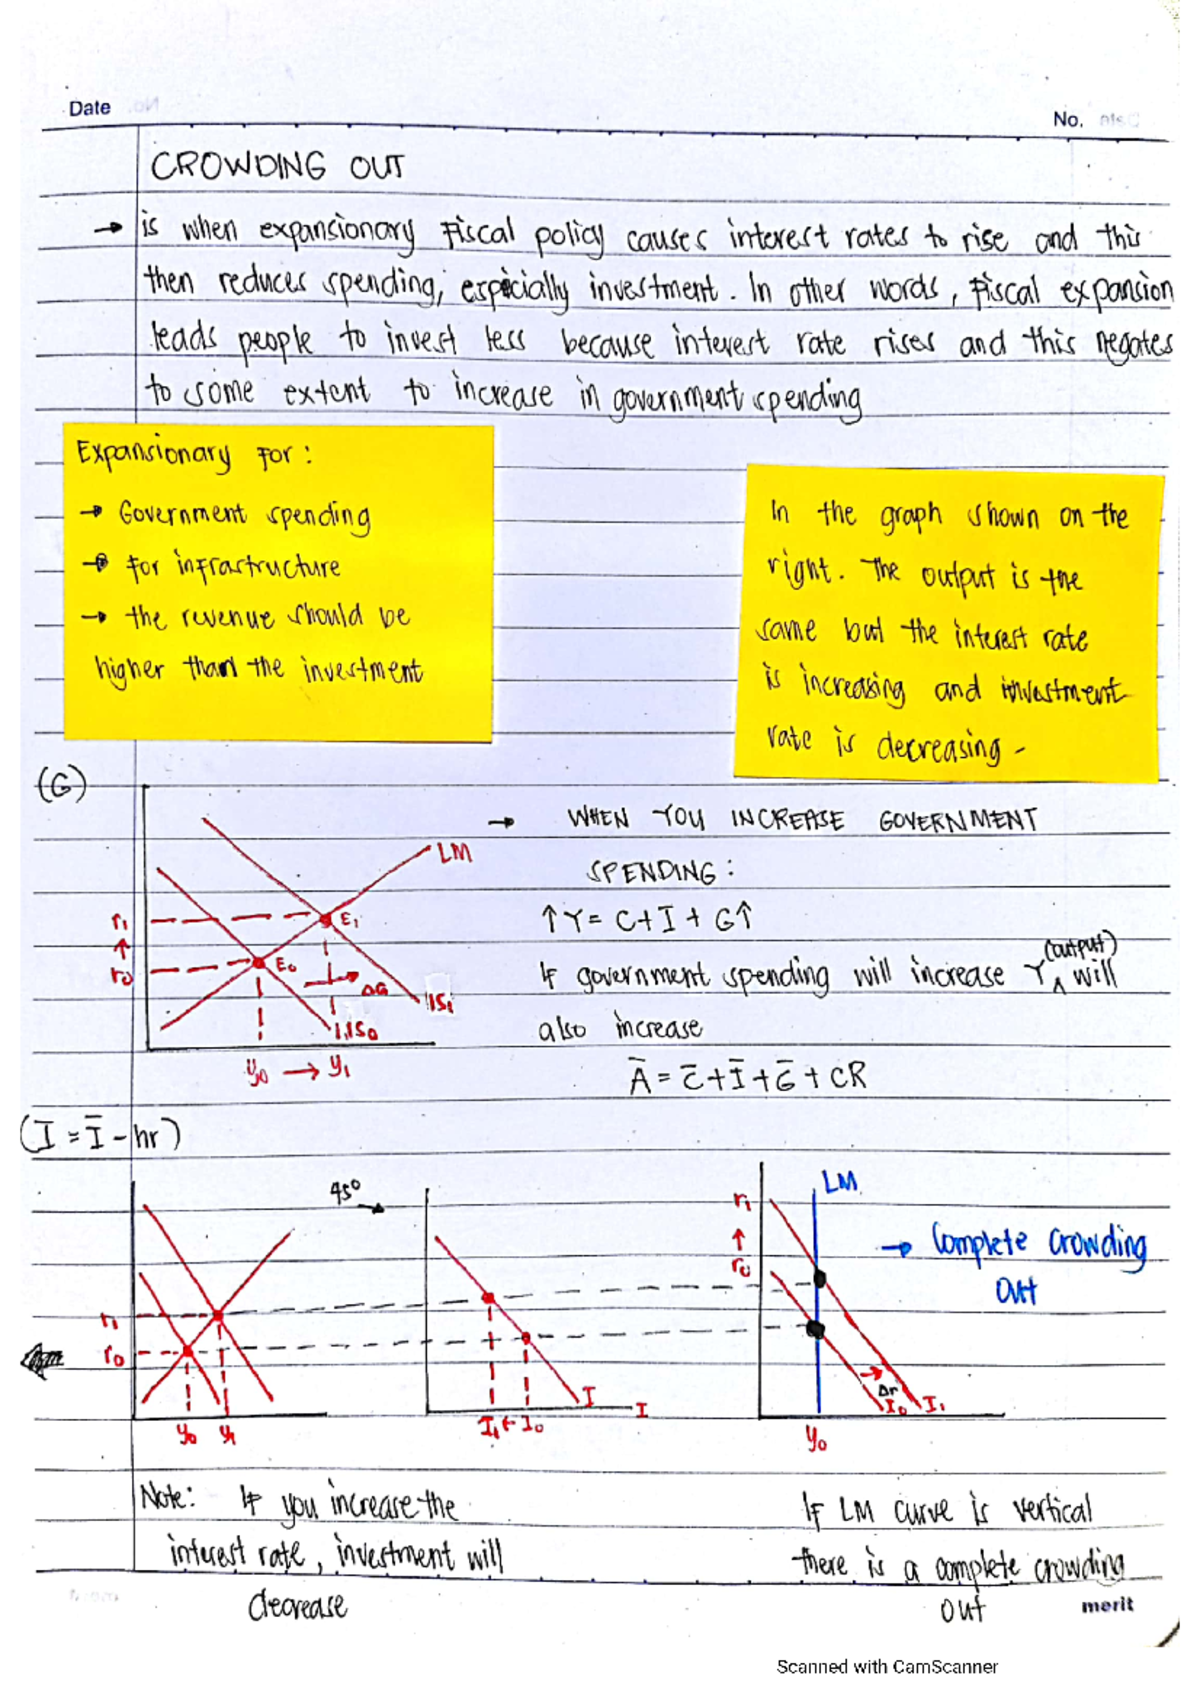 Date
No.
CROWDING OUT
→ is when expansionary fiscal policy causes interest rates to rise and this
then reduces spending, especially investment. In other words, fiscal expansion
leads people to invest less because interest rate rises and this negates
to some extent to increase in government spending
Expansionary for:
→ Government spending
→ for infrastructure
→ the revenue should be
higher than the investment
In the graph shown on the
right. The output is the
same but the interest rate
is increasing and investment
rate is decreasing -
(G)
LM
r₁
↑
r₀
E₁
E₀
ΔG
IS₁
IS₀
y₀ → y₁
→ WHEN YOU INCREASE GOVERNMENT
SPENDING:
↑Y = C + I + G↑
If government spending will increase Y (output) will
also increase
Ā = C̄ + Ī + Ḡ + CR
(I = Ī - hr)
45°
r₁
r₀
y₀ y₁
I
I
I₁ ← I₀
LM
r₁
↑
r₀
Δr
I₀ I₁
y₀
→ Complete Crowding
Out
Note: If you increase the
interest rate, investment will
decrease
If LM curve is vertical
there is a complete crowding
out
merit
Scanned with CamScanner